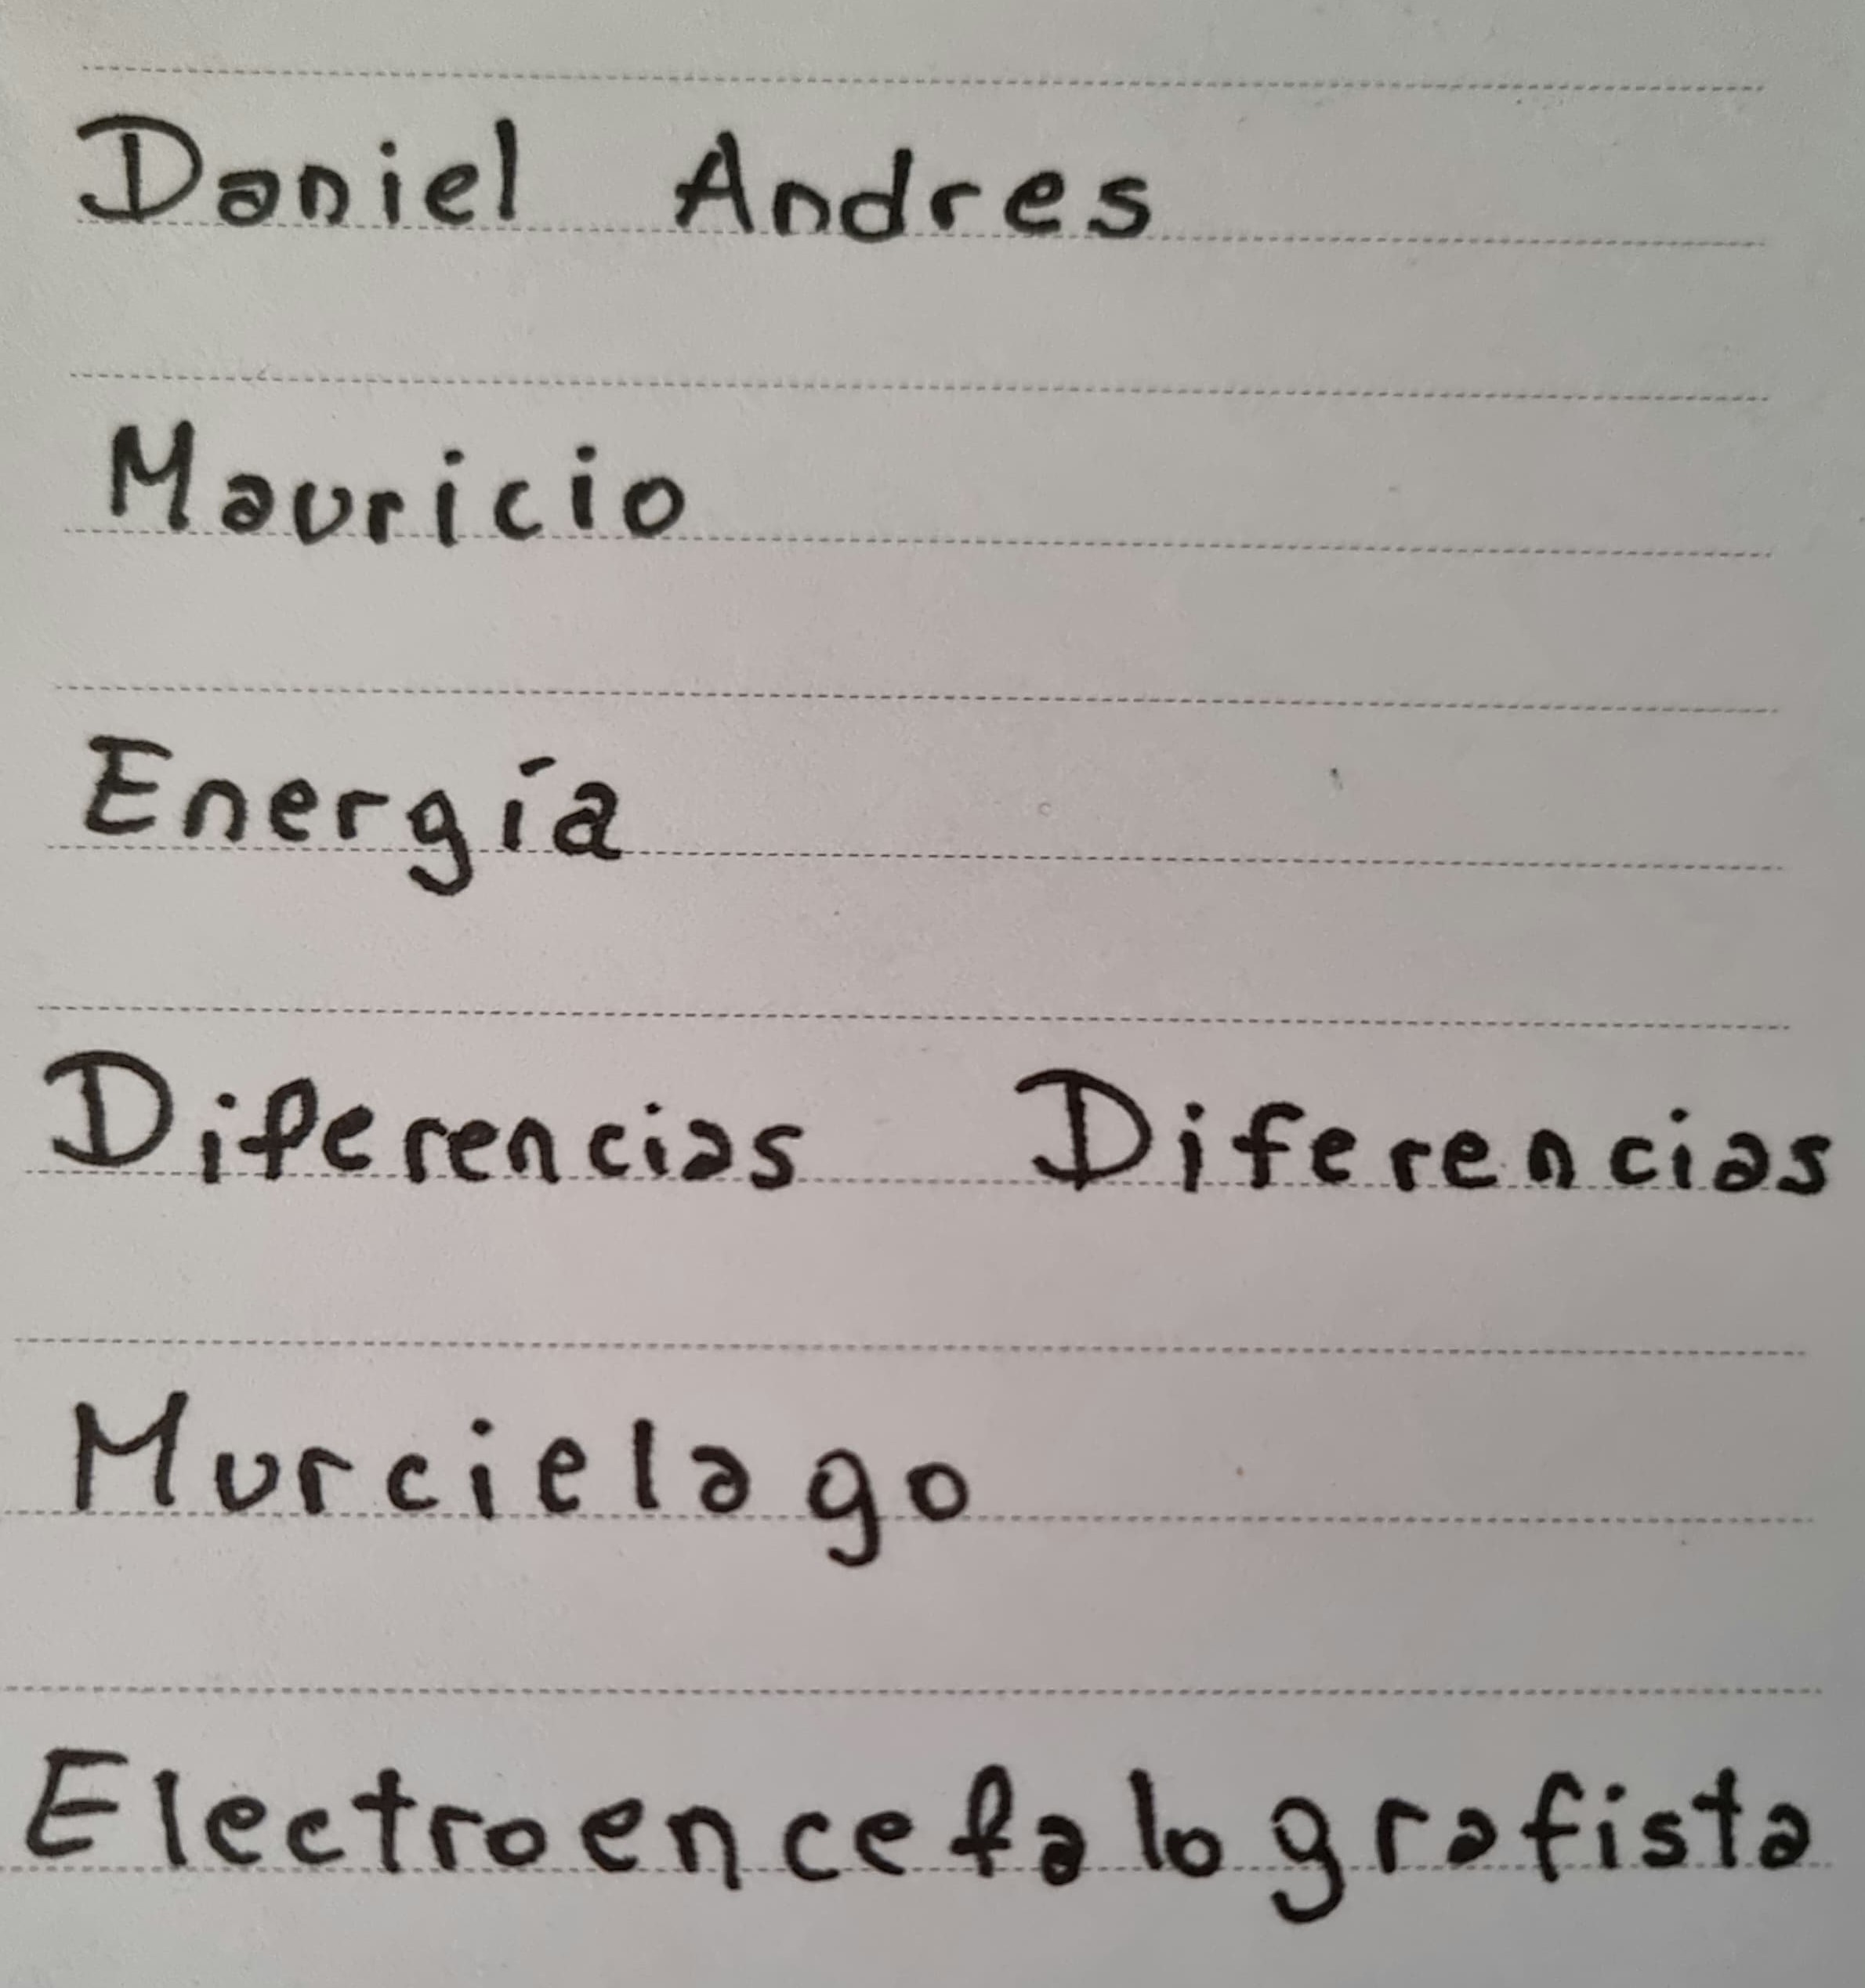 Daniel Andres
Mauricio
Energía
Diferencias Diferencias
Murcielago
Electroencefalografista